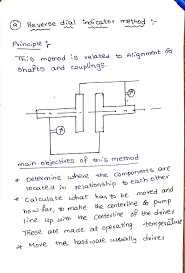 ⓐ Reverse dial indicator method :-
Principle :-
This method is related to alignment of
shafts and couplings.
main objectives of this method
* Determine where the components are
located in relationship to each other
* Calculate what has to be moved and
how far, to make the centerline of pump
line up with the centerline of the driver
These are made at operating -temperature
* Move the hardware usually driver